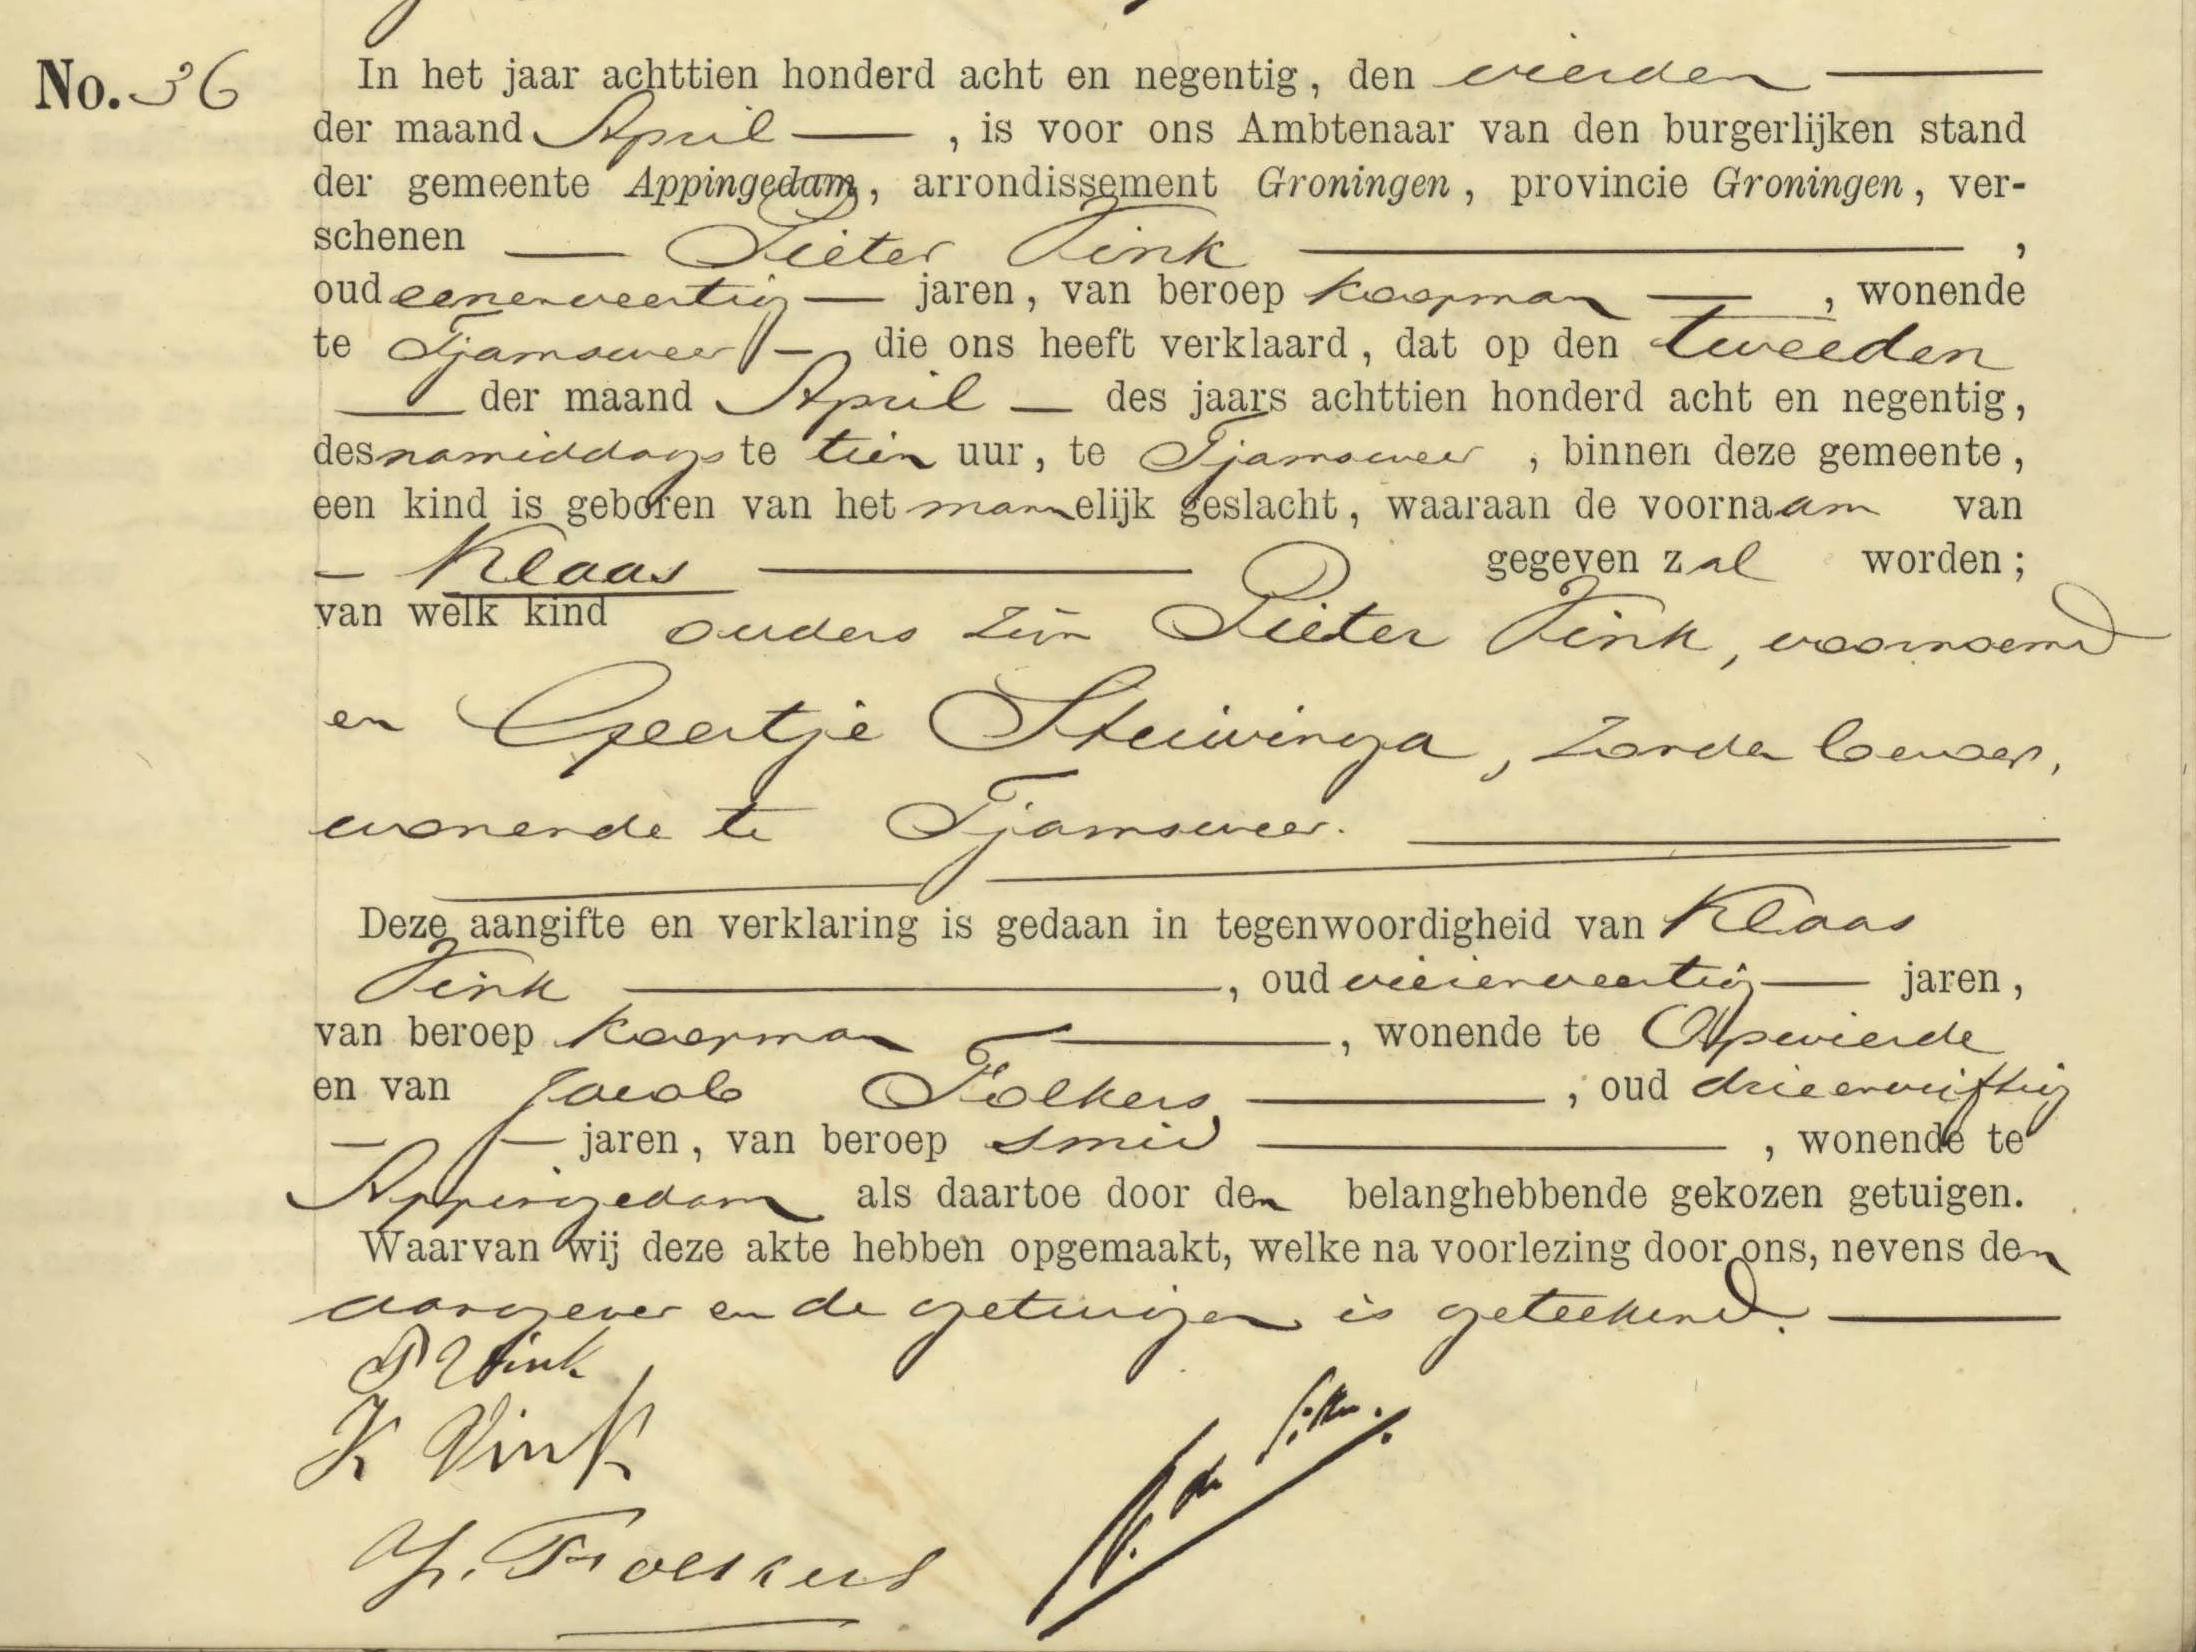 No. 36
In het jaar achttien honderd acht en negentig, den vierden
der maand April, is voor ons Ambtenaar van den burgerlijken stand
der gemeente Appingedam, arrondissement Groningen, provincie Groningen, ver-
schenen Pieter Vink,
oud eenenveertig jaren, van beroep koopman, wonende
te Tjamsweer die ons heeft verklaard, dat op den tweeden
der maand April des jaars achttien honderd acht en negentig,
des namiddags te tien uur, te Tjamsweer, binnen deze gemeente,
een kind is geboren van het mannelijk geslacht, waaraan de voornaam van
Klaas gegeven zal worden;
van welk kind ouders zijn Pieter Vink, voornoemd
en Geertje Stuivinga, zonder beroep,
wonende te Tjamsweer.
Deze aangifte en verklaring is gedaan in tegenwoordigheid van Klaas
Vink, oud vierenveertig jaren,
van beroep koopman, wonende te Opwierde
en van Jacob Folkers, oud drieenvijftig
jaren, van beroep smid, wonende te
Appingedam als daartoe door den belanghebbende gekozen getuigen.
Waarvan wij deze akte hebben opgemaakt, welke na voorlezing door ons, nevens den
aangever en de getuigen is geteekend.
P Vink
K Vink
J. Folkers